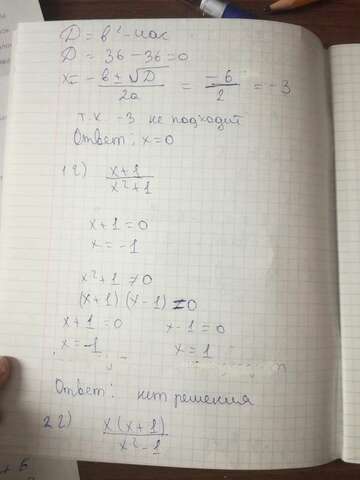 D = b² - 4ac
D = 36 - 36 = 0
x = - b ± √D / 2a = -6 / 2 = -3
т.к -3 не подходит
Ответ: x = 0
1 г) x+1 / x²+1
x + 1 = 0
x = -1
x² + 1 ≠ 0
(x+1) (x-1) ≠ 0
x + 1 = 0 x - 1 = 0
x = -1 x = 1
Ответ: нет решения
2 г) x(x+1) / x² - 1